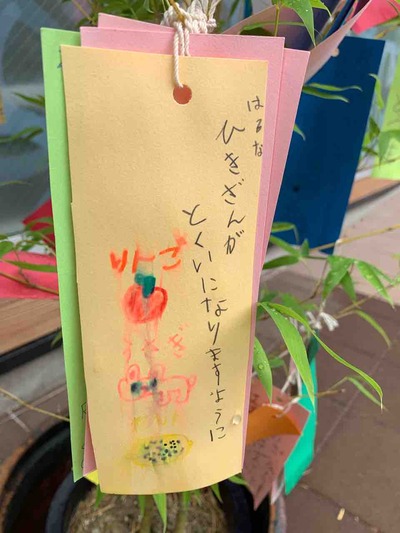 はるな
ひきざんが
とくいになりますように
りんご
うさぎ